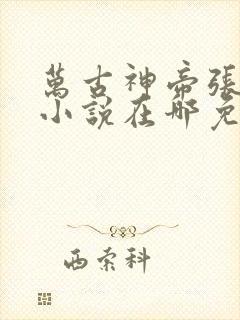 萬古神帝張
小說在哪免
西索科